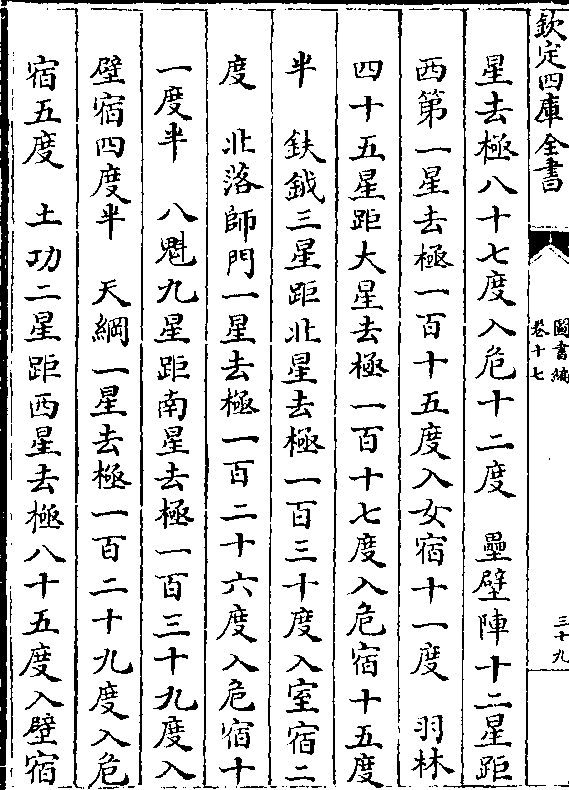 欽定四庫全書
圖書編
卷十七
三十九
星去極八十七度入危十二度　壘壁陣十二星距
西第一星去極一百十五度入女宿十一度　羽林
四十五星距大星去極一百十七度入危宿十五度
半　鈇鉞三星距北星去極一百三十度入室宿二
度　北落師門一星去極一百二十六度入危宿十
一度半　八魁九星距南星去極一百三十九度入
壁宿四度半　天綱一星去極一百二十九度入危
宿五度　土功二星距西星去極八十五度入壁宿